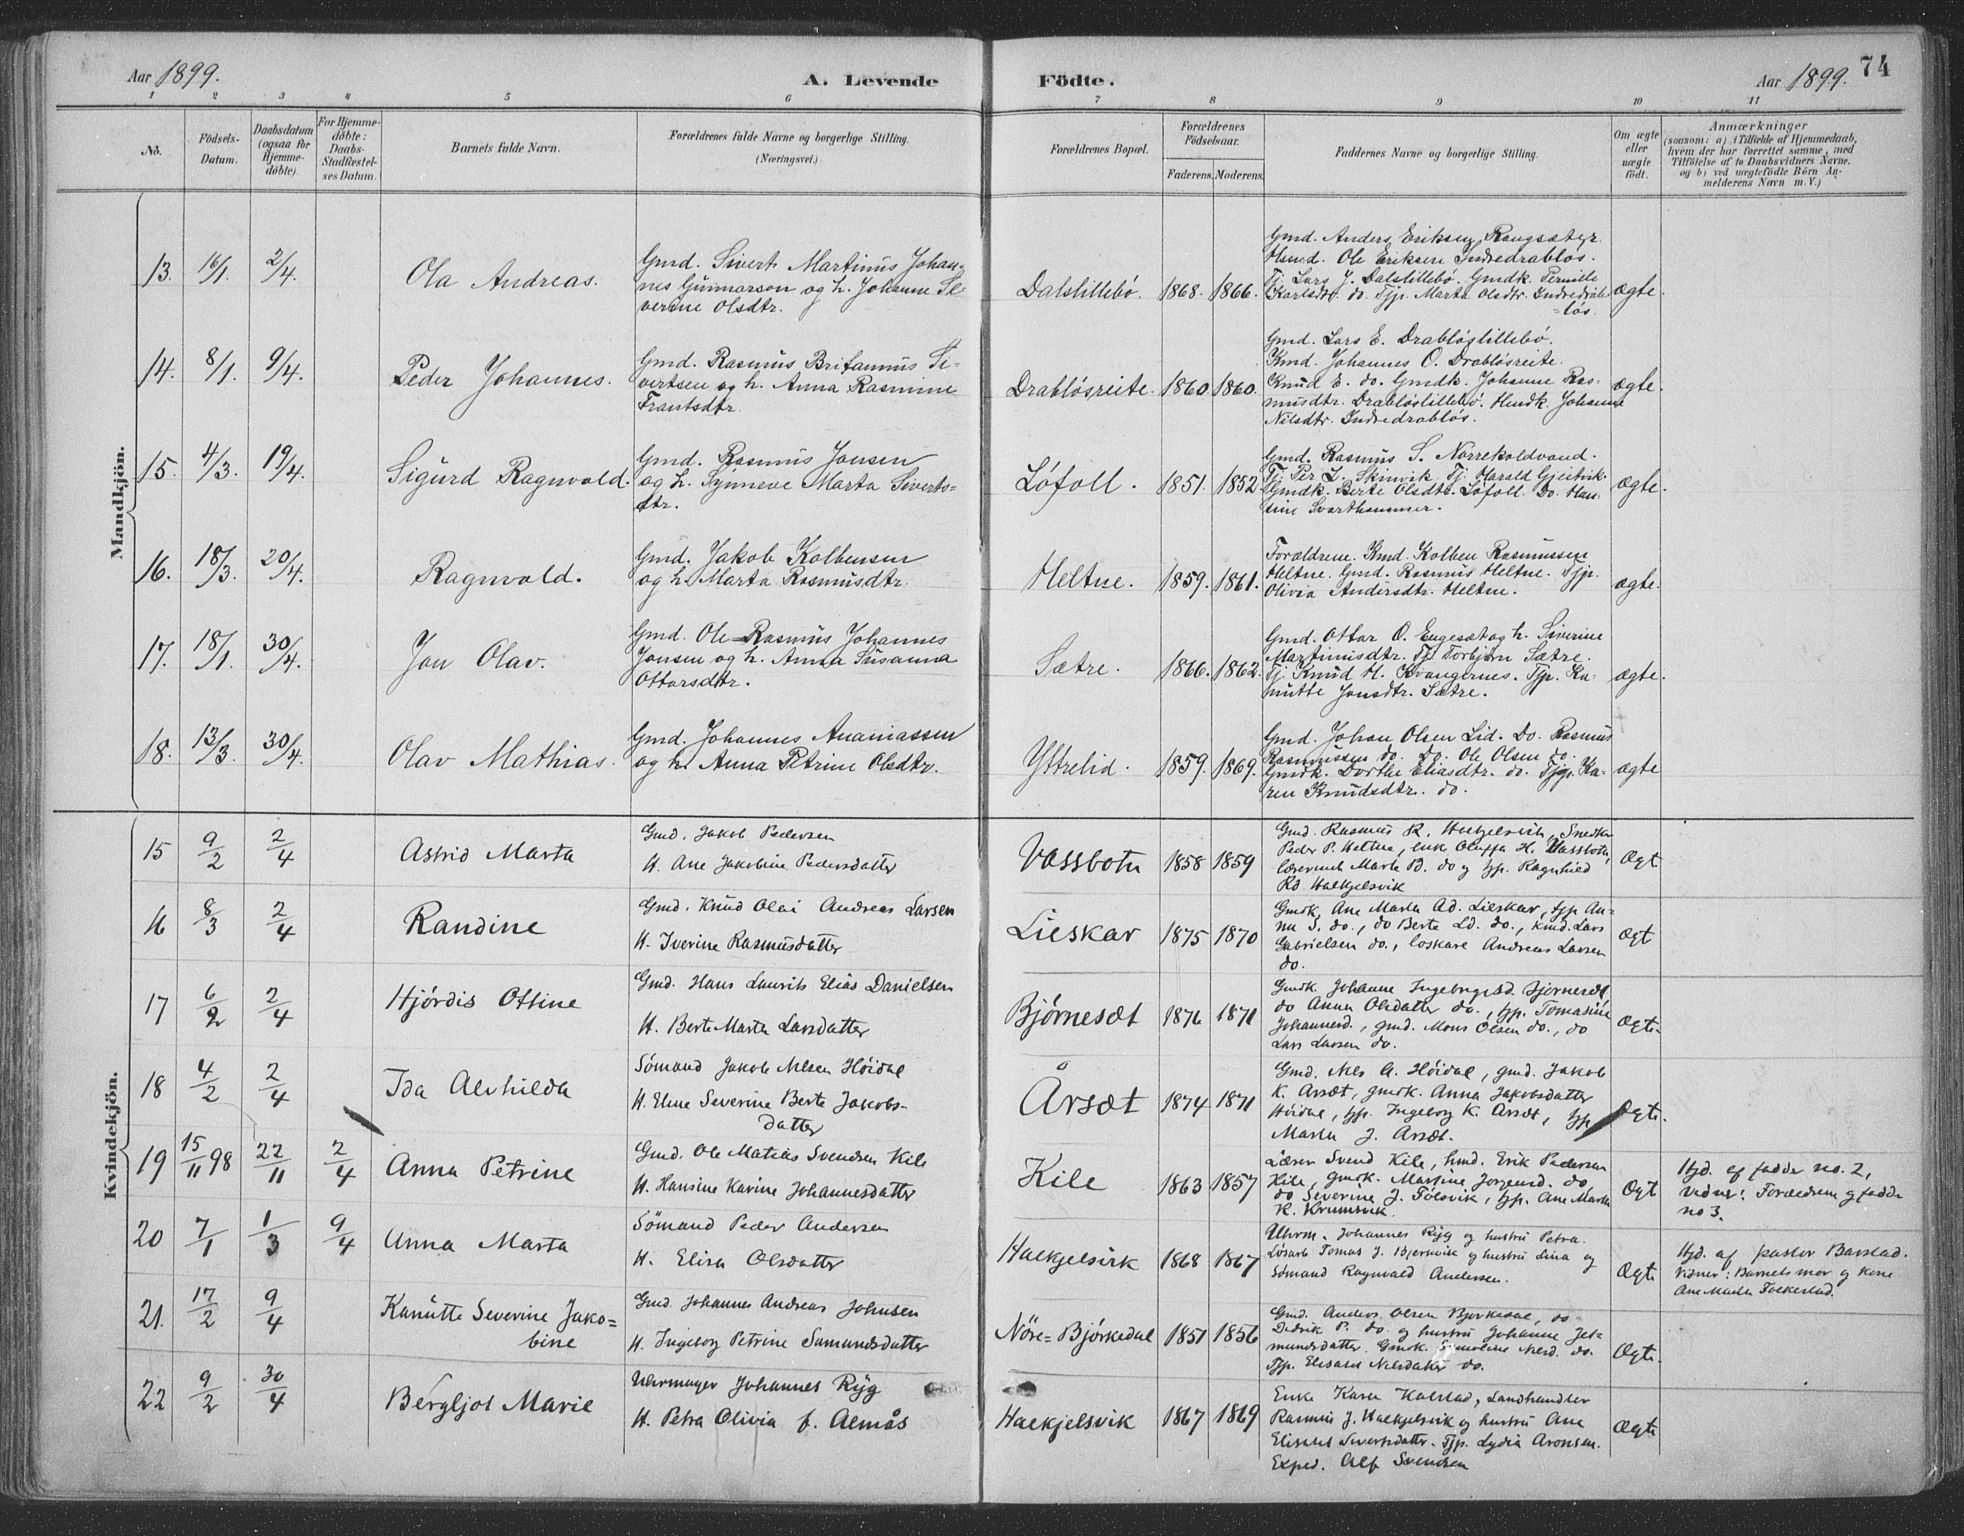 Aar 1899.
A. Levende
Födte.
Aar 1899.
74
1 2 3 4 5 6 7 8 9 10 11
No.
Födsels-Datum.
Daabsdatum (ogsaa for Hjemme-döbte).
For Hjemme-döbte: Daabs-Stadfæstel-ses Datum.
Barnets fulde Navn.
Forældrenes fulde Navne og borgerlige Stilling. (Næringsvei.)
Forældrenes Bopæl.
Forældrenes Födselsaar.
Faderens. Moderens.
Faddernes Navne og borgerlige Stilling.
Om ægte eller uægte födt.
Anmærkninger
(saasom: a) i Tilfælde af Hjemmedaab, hvem der har forrettet samme, med Tilföielse af to Daabsvidners Navne, og b) ved uægtefödte Börn An-melderens Navn m. V.)
Mandkjön.
13. 16/1. 2/4. Ola Andreas.
Gmd. Sivert Martinus Johan-
nes Gunnarson og h. Johanne Se-
verine Olsdtr.
Dalslillebø. 1868. 1866.
Gmd. Anders Eriksen Raugsætør.
Hmd. Ole Eriksen Indredrabløs.
Tj. Lars J. Dalslillebø. Gmdk. Pernille
Karlsdtr. do. Tjp. Marta Olsdtr. Indredrab-
=løs.
ægte.
14. 8/1. 9/4. Peder Johannes.
Gmd. Rasmus Britannus Si-
vertsen og h. Anna Rasmine
Frantsdtr.
Drabløsreite. 1860. 1860.
Gmd. Lars E. Drabløslillebø.
Kmd. Johannes O. Drabløsreite.
Knud E. do. Gmdk. Johanne Ras-
musdtr. Drabløslillebø. Hmdk. Johanne
Nilsdtr. Indredrabløs.
ægte.
15. 4/3. 19/4. Sigurd Ragnvald.
Gmd. Rasmus Jonsen
og h. Synneve Marta Siverts-
dtr.
Løfoll. 1851. 1852.
Gmd. Rasmus S. Norrekoldvand.
Tj. Per L. Skinvik. Tj. Harald Gjeitvik.
Gmdk. Berte Olsdtr. Løfoll. Do. Han-
sine Svarthammer.
ægte.
16. 18/3. 20/4. Ragnvald.
Gmd. Jakob Kolbensen
og h. Marta Rasmusdtr.
Heltne. 1859. 1861.
Forældrene. Kmd. Kolben Rasmussen
Heltne. Gmd. Rasmus Heltne. Tjp.
Olivia Andersdtr. Heltne.
ægte.
17. 18/1. 30/4. Jon Olav.
Gmd. Ole Rasmus Johannes
Jonsen og h. Anna Susanna
Ottarsdtr.
Sætre. 1866. 1862.
Gmd. Ottar O. Engeset og h. Siverine
Martinusdtr. Tj. Torbjørn Sætre.
Tj. Knud H. Kvangernes. Tjp. Ka-
nutte Jonsdtr. Sætre.
ægte.
18. 13/3. 30/4. Olav Mathias.
Gmd. Johannes Ananiassen
og h. Anna Petrine Olsdtr.
Yttrelid. 1859. 1869.
Gmd. Johan Olsen Lid. Do. Rasmus
Rasmussen do. Do. Ole Olsen do.
Gmdk. Dorthe Eliasdtr. do. Tjp. Ka-
ren Knudsdtr. do.
ægte
Kvindekjön.
15 9/2 2/4 Astrid Marta
Gmd. Jakob Pedersen
H. Ane Jakobine Pedersdatter
Vassbotn 1858 1859
Gmd. Rasmus R. Halkjelsvik, Snedker
Peder P. Heltne, enke Oluffa H. Vassbotn,
Marte B. do og tjp. Ragnhild
Rd Halkjelsvik
Ægt
16 8/3 2/4 Randine
Gmd. Knud Olai Andreas Larsen
H. Iverine Rasmusdatter
Lieskar 1875 1870
Gmdk. Ane Marta Ad. Lieskar, tjp An-
na S. do., do Berte Ld. do., Kmd. Lars
Gabrielsen do., loskare Andreas Larsen
do.
Ægt
17 6/2 2/4 Hjørdis Ottine
Gmd. Hans Laurits Elias Danielsen
H. Berte Marta Larsdatter
Bjørnesæt 1876 1871
Gmdk Johanne Ingebrigtsd. Bjørnesæt
do Anna Olsdatter do., tjp. Tomasine
Johannesd., gmd. Mons Olsen do., do
Lars Larsen do.
Ægte.
18 4/2 2/4 Ida Alvhilda
Sømand Jakob Nilsen Høidal
H. Eline Severine Berte Jakobs-
datter
Årsæt 1874 1871
Gmd. Nils A. Høidal, gmd. Jakob
K. Årsæt, gmdk. Anna Jakobsdatter
Høidal, tjp. Ingeborg K. Årsæt, tjp
Marta J. Årsæt.
Ægte.
19 15/11 98 22/11 2/4 Anna Petrine
Gmd. Ole Matias Svendsen Kile
H. Hansine Karine Johannesdatter
Kile 1863 1857
Lærer Svend Kile, hmd. Erik Pedersen
Kile, gmdk. Martine Jørgensd. do,
do Severine J. Følsvik, tjp. Ane Marte
K. Krumsvik
Ægt
Hjd. af fadder no. 2,
Vidner: Forældrene og fadder
no 3.
20 7/1 1/3 9/4 Anna Marta
Sømand Peder Andersen
H. Elisa Olsdatter
Halkjelsvik 1868 1867
Uhrm. Johannes Ryg og hustru Petra.
Løsarb Tomas J. Bjørnvik og hustru Lina og
Sømand Ragnvald Andersen.
Ægte
Hjd. af pastor Barstad.
Vidner: Barnets mor og kone
Ane Marta Folkestad.
21. 17/2 9/4 Kanutte Severine Jako=
bine
Gmd. Johannes Andreas Johnsen
H. Ingeborg Petrine Samundsdatter
Nøre=Bjørkedal 1851 1856
Gmd. Anders Olsen Bjørkedal, do
Didrik P. do. og hustru Johanne Jet-
mundsdatter. Gmdk. Nilsd. do.
Tjp. Elisabet Nilsdatter do.
Ægte.
22 9/2 30/4 Bergljot Marie
Uhrmager Johannes Ryg
H. Petra Olivia f. Almås
Halkjelsvik 1867 1869
Enke Karen Kalstad, Landhandler
Rasmus J. Halkjelsvik og hustru Ane
Elisabet Sivertsdatter. Tjp. Lydia Aronsen.
Exped. Alf Svendsen
Ægte